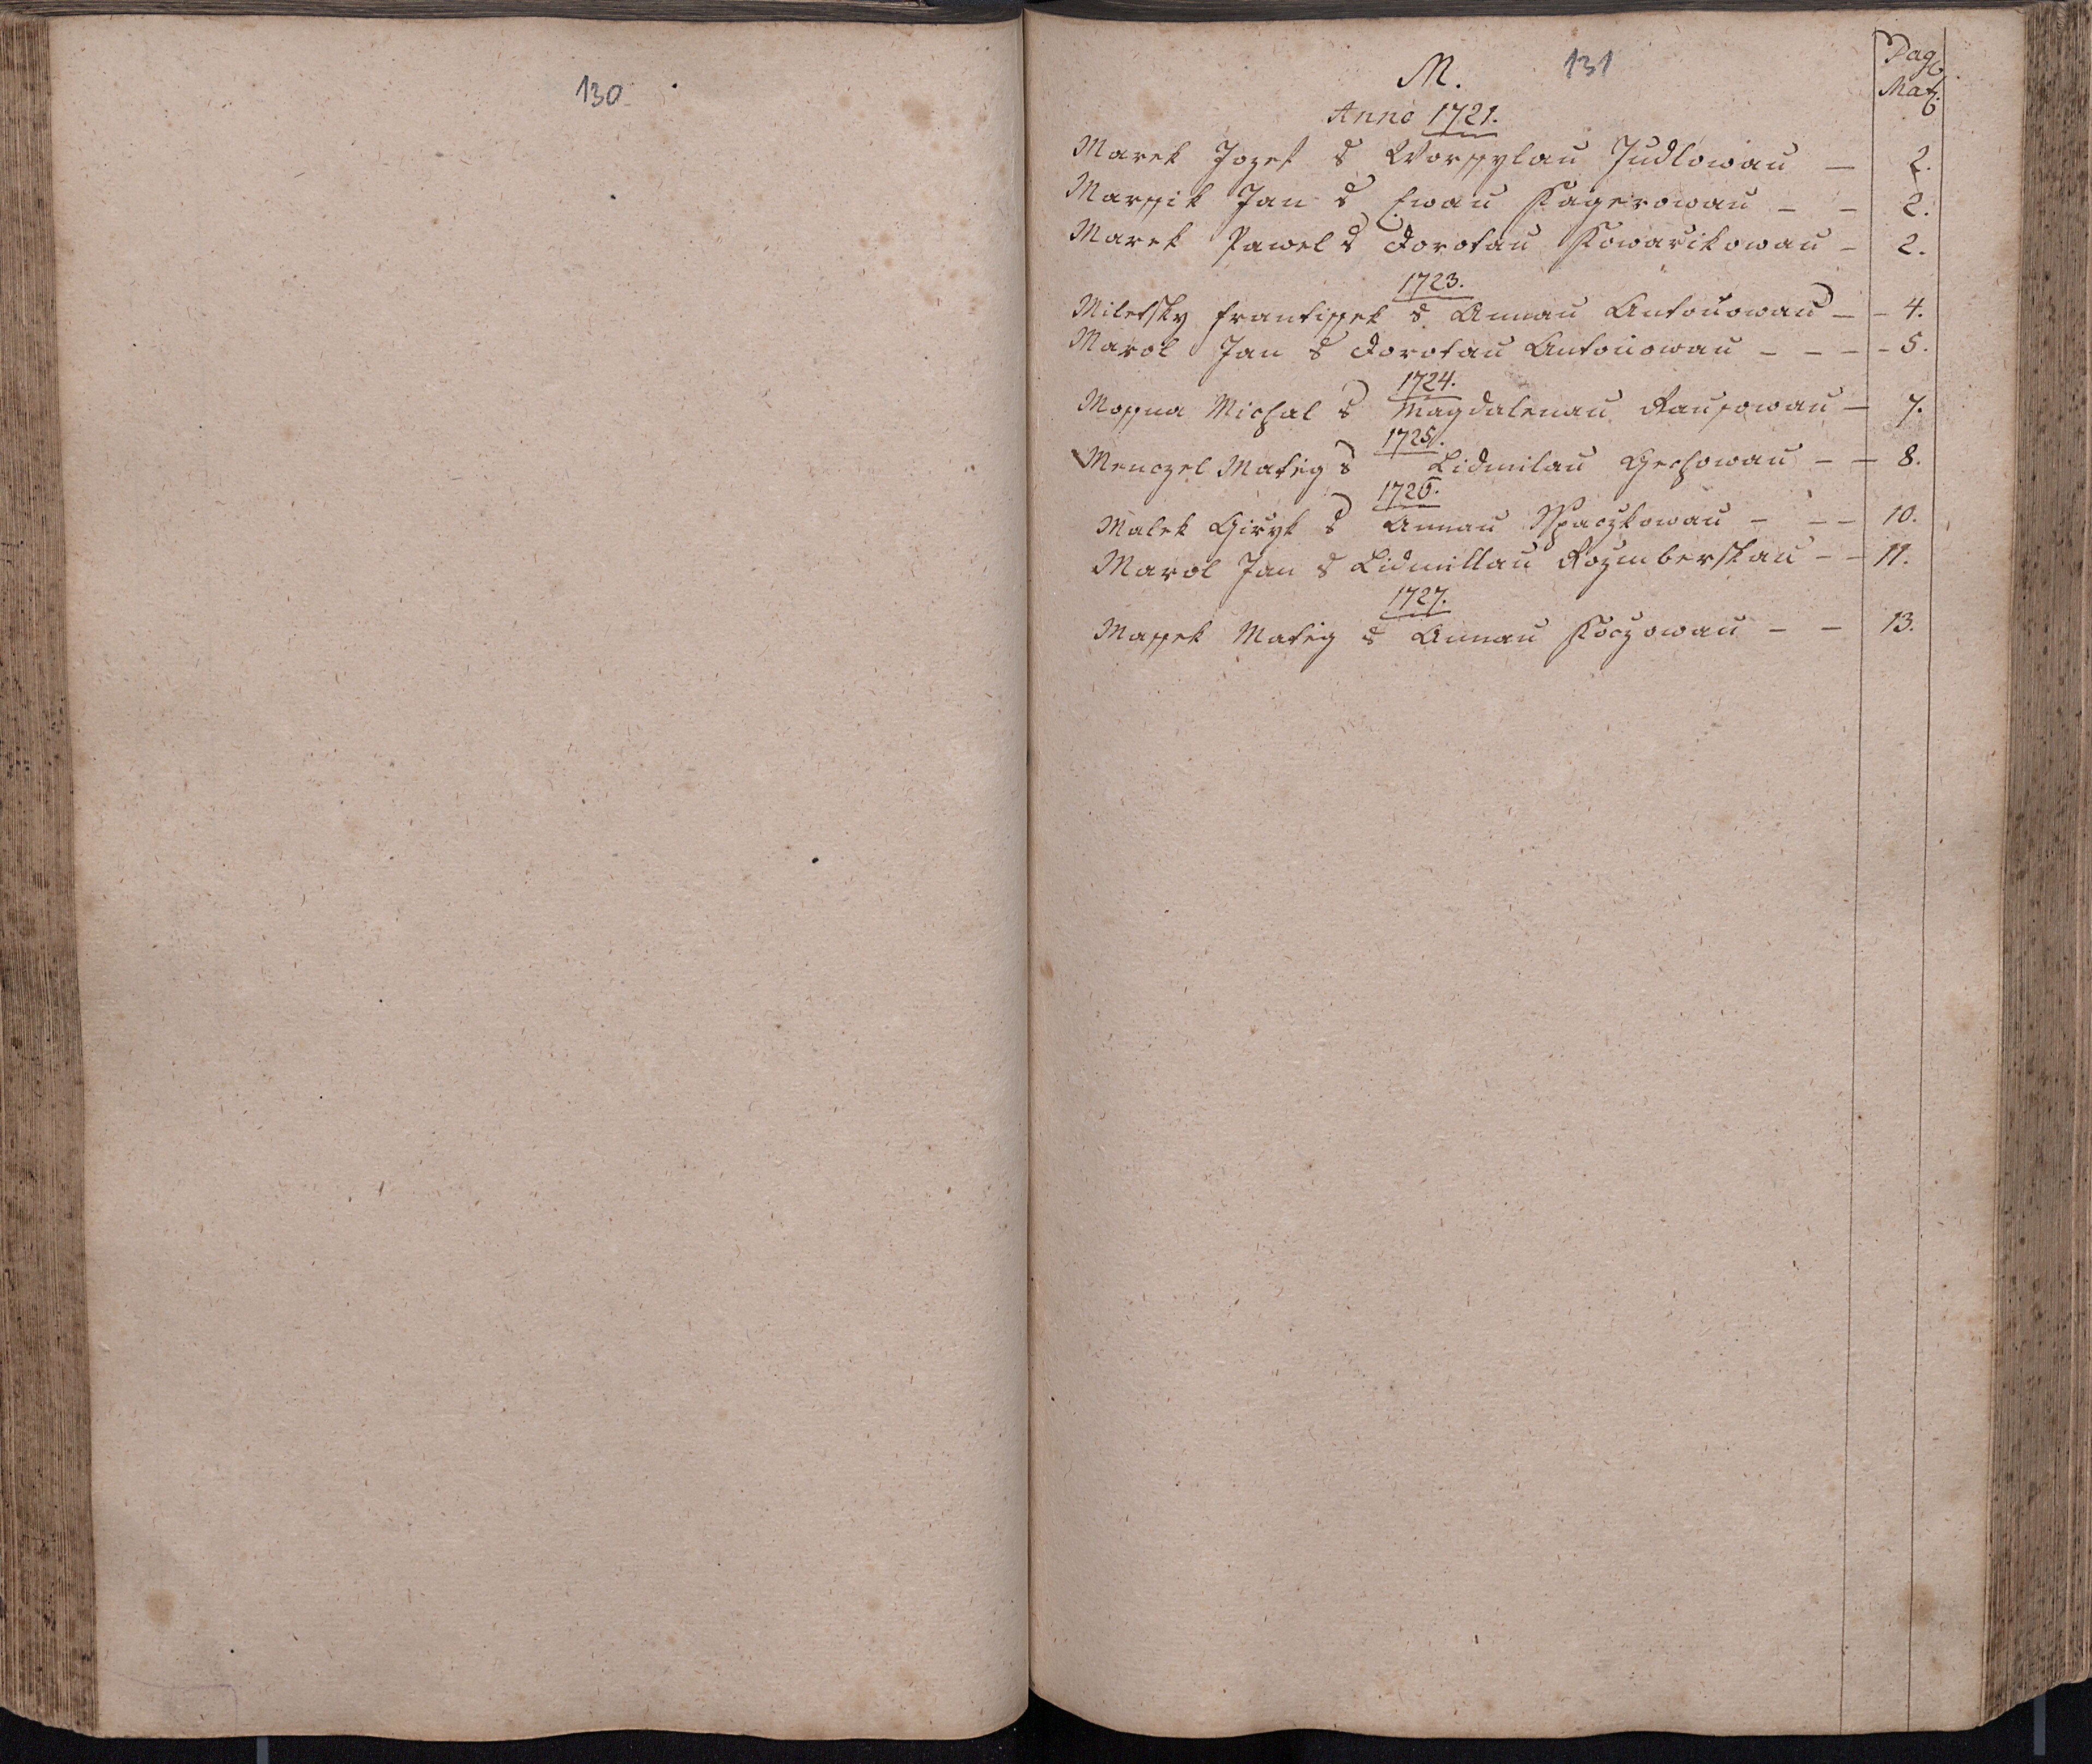 130
131
M.
Pag.
Mat.
Anno 1721.
Marek Jozef s Worssylau Judlowau — 2.
Marssik Jan s Ewau Kagerowau – – 2.
Marek Pawel s Dorotau Kowarikowau – 2.
1723.
Miletsky Frantissek s Annau Antonowau – – 4.
Marol Jan s Dorotau Antonowau – – – – 5.
1724.
Mossna Michal s Magdalenau Rausowau — 7.
1725.
Menczel Matieg s Lidmilau Gechowau – – 8.
1726.
Malek Girzyk s Annau Sspaczkowau – – – 10.
Marol Jan s Lidmillau Rozmberskau – – 11.
1727.
Massek Matieg s Annau Koczowau – – 13.